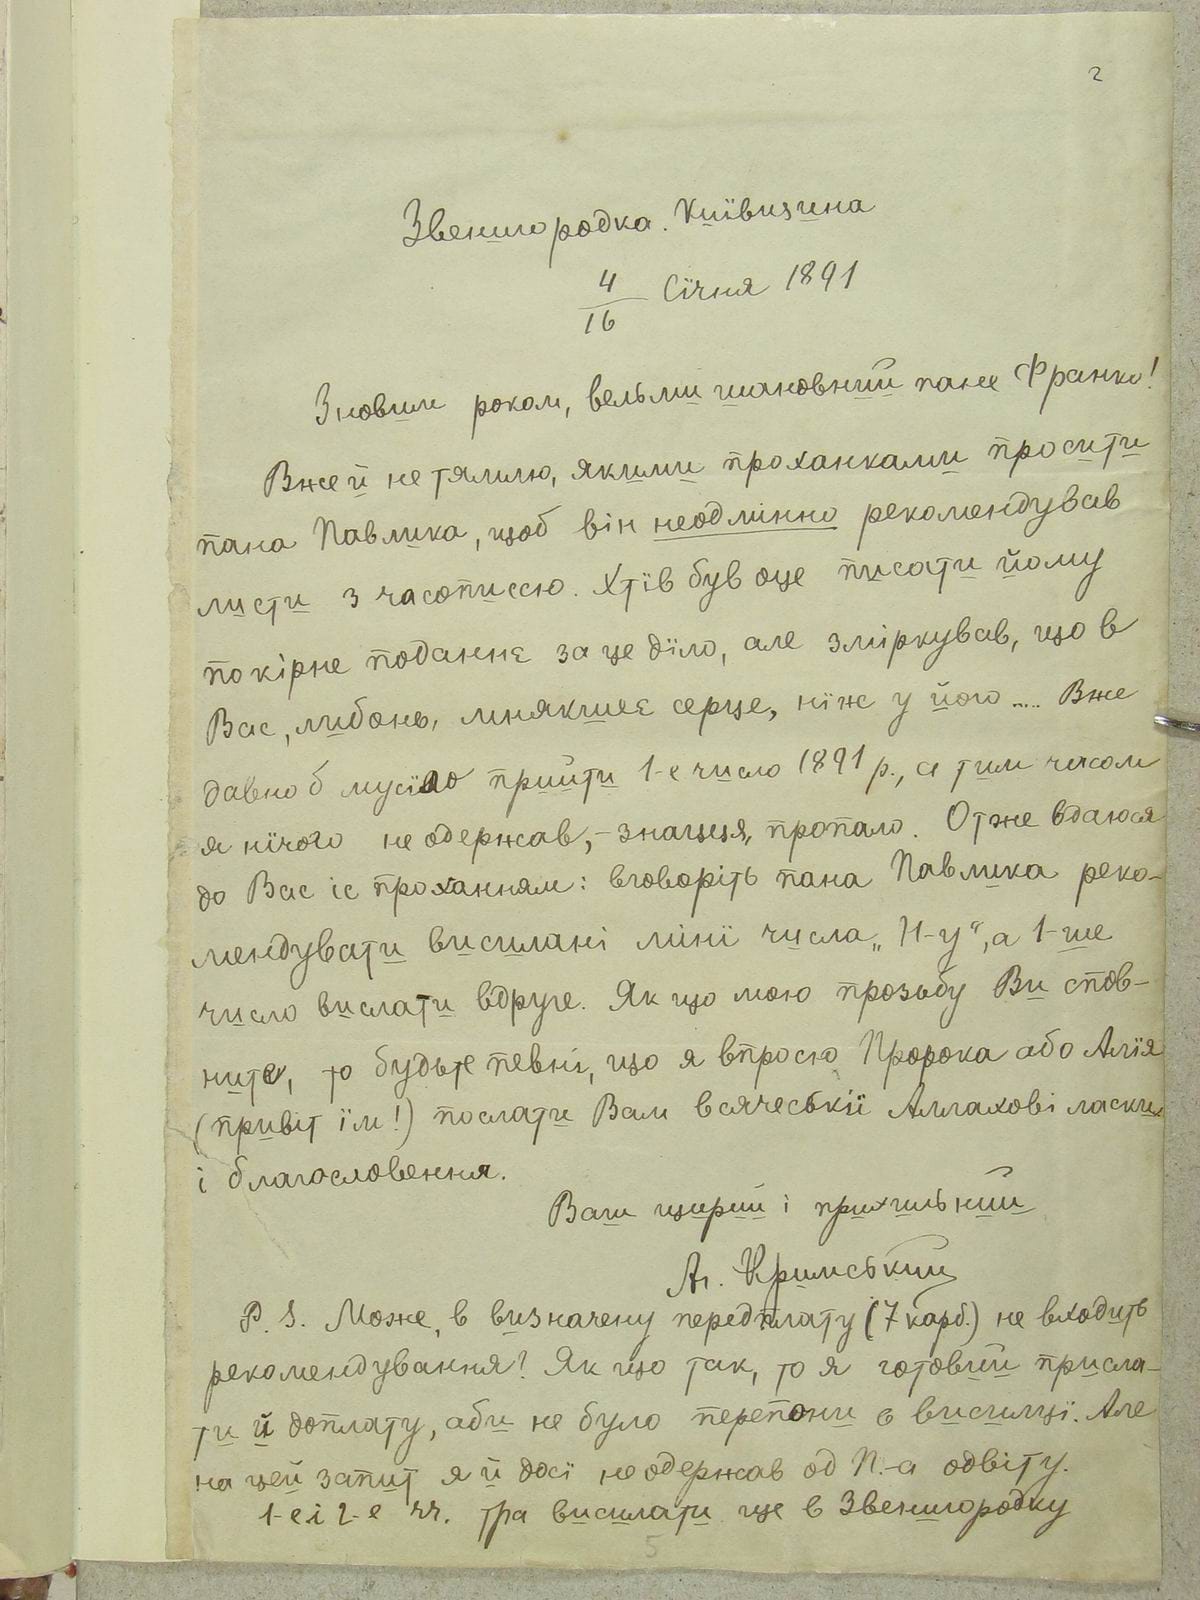 2
Звенигородка. Київщина
4/16 Сїчня 1891
З новим роком, вельми шановний пане Франко!
Вже й не тямлю, якими проханками просити
пана Павлика, щоб він неодмінно рекомендував
листи з часописсю. Хтїв був оце писати йому
покірне поданнє за це дїло, але зміркував, що в
Вас, либонь, мнякшеє серце, нїж у його .... Вже
давно б мусїло прийти 1-е число 1891 р., а тим часом
я нїчого не одержав, – значиця, пропало. Отже вдаюся
до Вас іс проханням: вговоріть пана Павлика реко-
мендувати висилані мінї числа „Н-у“, а 1-ше
число вислати вдруге. Як що мою прозьбу Ви спов-
ните, то будьте певні, що я впрошю Пророка або Алїя
(привіт їм!) послати Вам всячеськії Аллахові ласки
і благословення.
Ваш щирий і прихильний
Аг. Кримський
P. S. Може, в визначену передплату (7 карб.) не входить
рекомендування? Як що так, то я готовий присла-
ти й доплату, аби не було перепони в висилцї. Але
на цей запит я й досї не одержав од П.-а одвіту.
1-е і 2-е чч. тра висилати ще в Звенигородку
5